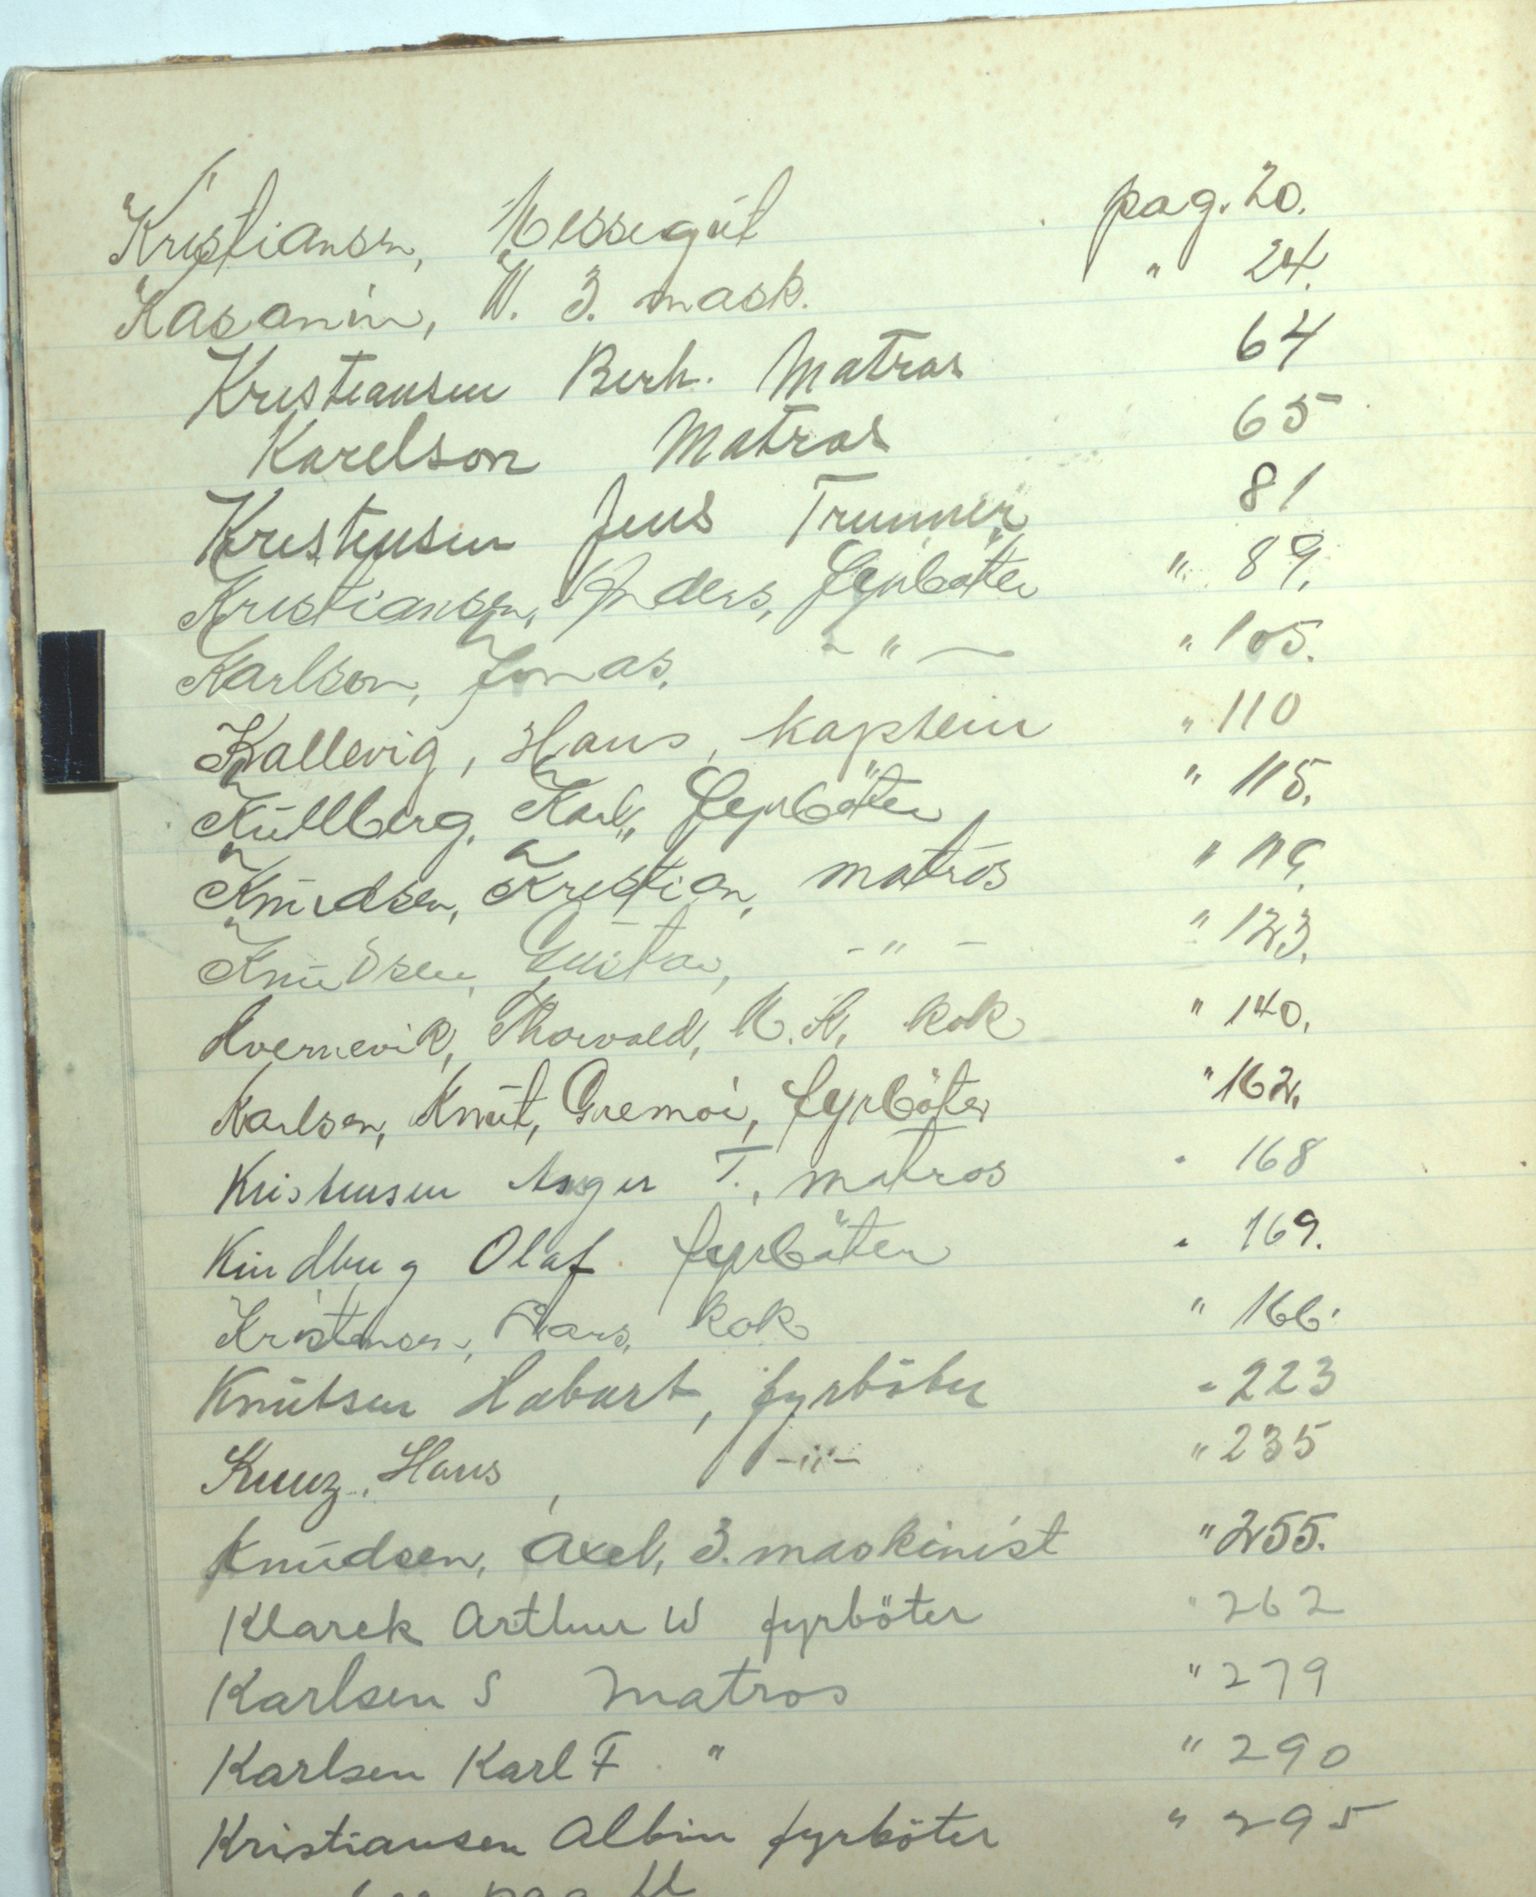 Kristiansen, Messegut pag. 20.
Kasanin, W. 3. mask. " 24.
Kristiansen Berh. Matros 64
Karelson Matros 65
Kristensen Jens Trimmer 81
Kristiansen, Anders, fyrböter " 89.
Karlson, Jonas, - " - " 105.
Kallevig, Hans, kaptein " 110
Kullberg, Karl, fyrböter " 115.
Knudsen, Kristian, matros " 119.
Knudsen, Gustav, - " - " 123.
Kvernevik, Thorvald, kok " 140.
Karlsen, Knut, fyrböter " 162.
Kristensen Asger T., matros " 168
Kindberg Olaf fyrböter " 169.
Kristensen, Hans, kok " 166.
Knutsen Habart, fyrböter " 223
Kunz, Hans, - " - " 235
Knudsen, Axel, 3. maskinist " 255.
Klarek Arthur W fyrböter " 262
Karlsen S Matros " 279
Karlsen Karl F " " 290
Kristiansen Albin fyrböter " 295